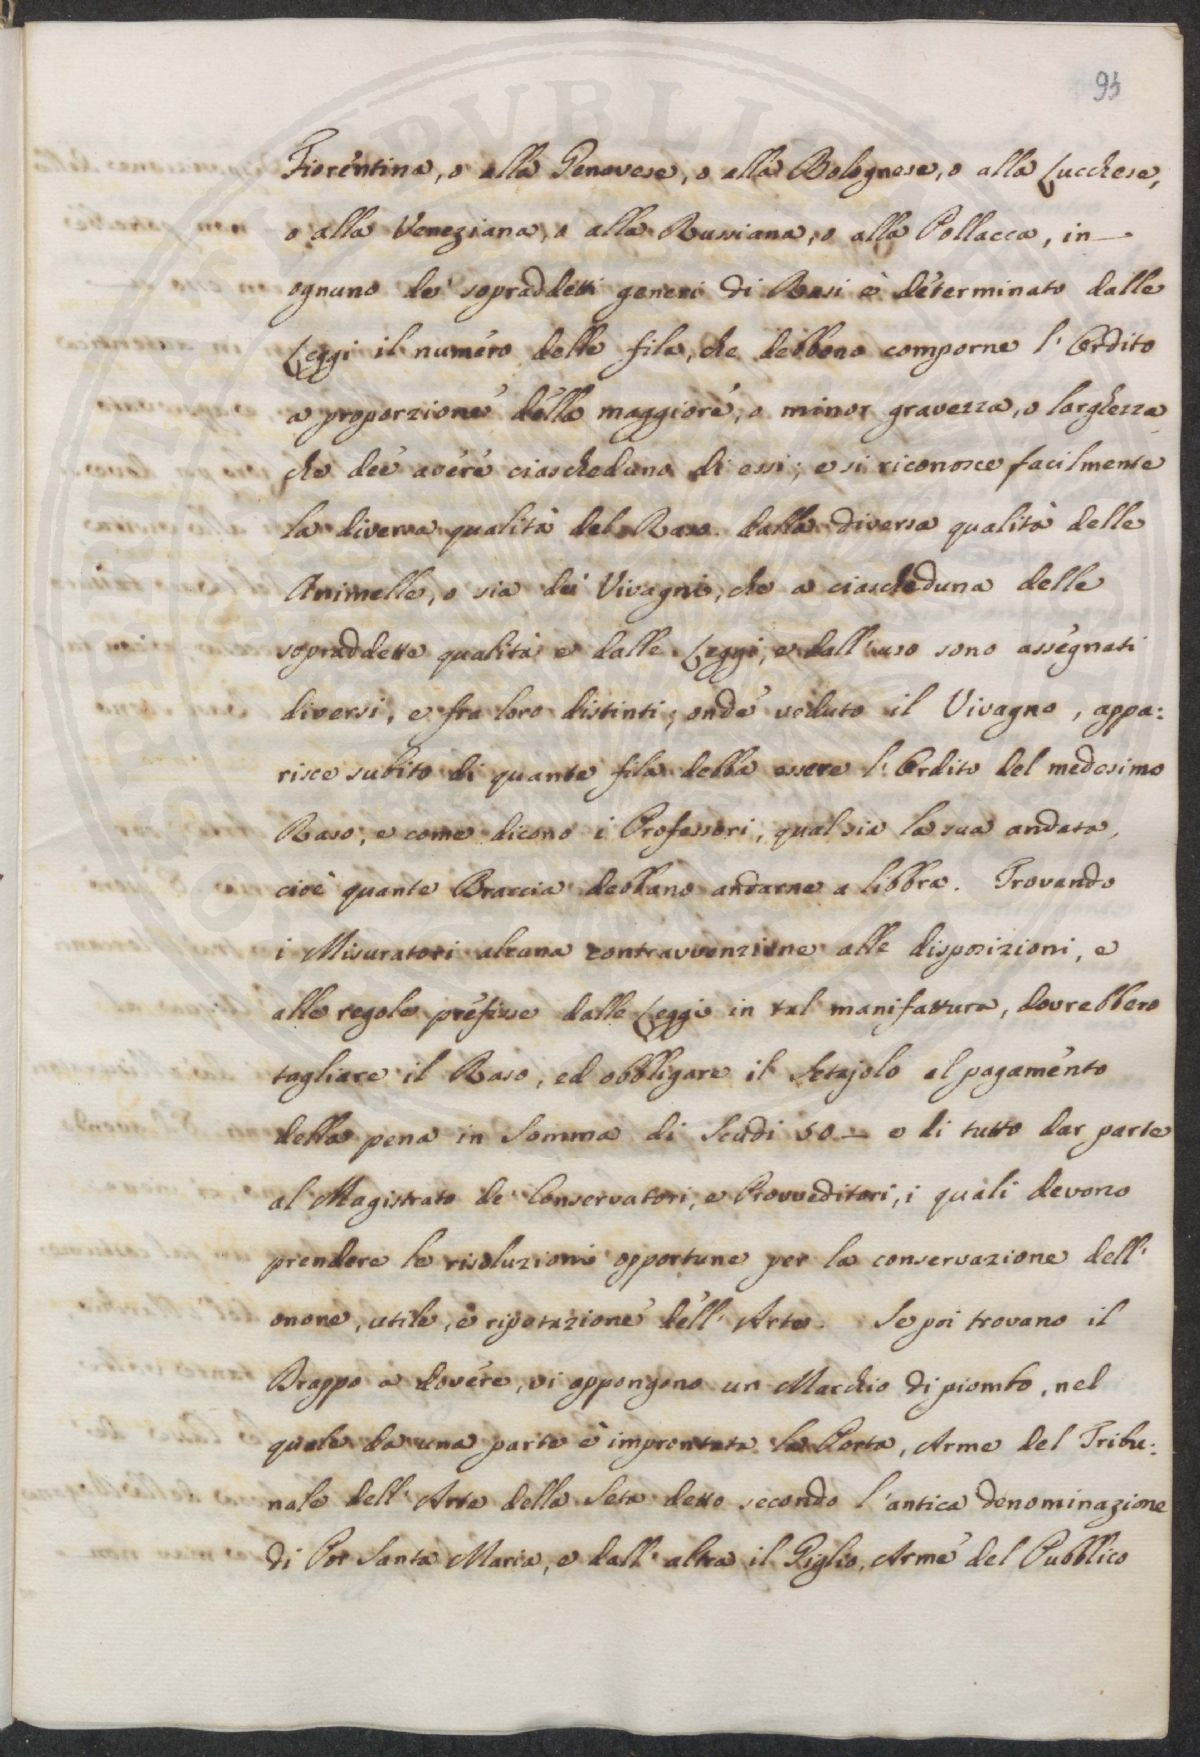 95
Fiorentina, o alla Genovese, o alla Bolognese, o alla Lucchese,
o alla Veneziana, o alla Russiana, o alla Pollacca, in
ognuno de' sopraddetti generi di Rasi è determinato dalle
Leggi il numero delle fila, che debbono comporne l'Ordito
a proporzione della maggiore, o minor gravezza, o larghezza
che dee avere ciascheduno di essi; e si riconosce facilmente
la diversa qualità del Raso dalla diversa qualità delle
Animelle, o sia dei Vivagni, che a ciascheduna delle
sopraddette qualità e dalle Leggi, e dall'uso sono assegnati
diversi, e fra loro distinti; onde veduto il Vivagno, appa:
risce subito di quante fila debba essere l'Ordito del medesimo
Raso, e come dicono i Professori, qual sia la sua andata,
cioè quante Braccia debbano andarne a libbra. Trovando
i Misuratori alcuna contravvenzione alle disposizioni, e
alle regole prefisse dalle Leggi in tal manifattura, dovrebbero
tagliare il Raso, ed obbligare il Setajolo al pagamento
della pena in Somma di Scudi 50 – e di tutto dar parte
al Magistrato de' Conservatori, e Provveditori, i quali devono
prendere le risoluzioni opportune per la conservazione dell'
onore, utile, e riputazione dell'Arte. Se poi trovano il
Drappo a dovere, vi appongono un Marchio di piombo, nel
quale da una parte è improntata la Porta, Arme del Tribu:
nale dell'Arte della Seta detto secondo l'antica denominazione
di Por Santa Maria, e dall'altra il Giglio, Arme del Pubblico